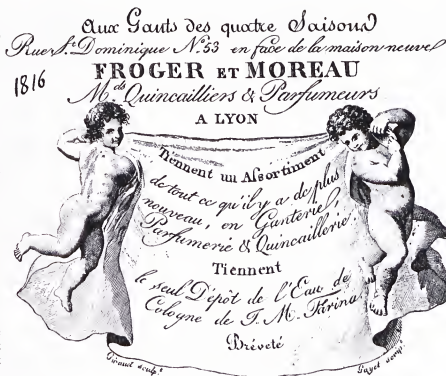 Aux Gants des quatre Saisons
Rue St. Dominique No. 53 en face de la maison neuve
1816
FROGER ET MOREAU
Mds. Quincailliers & Parfumeurs
A LYON
Tiennent un Assortiment
de tout ce qu'il y a de plus
nouveau, en Ganterie,
Parfumerie & Quincaillerie.
Tiennent
le seul Dépôt de l'Eau de
Cologne de J. M. Farina
Bréveté
Giraud sculp.t